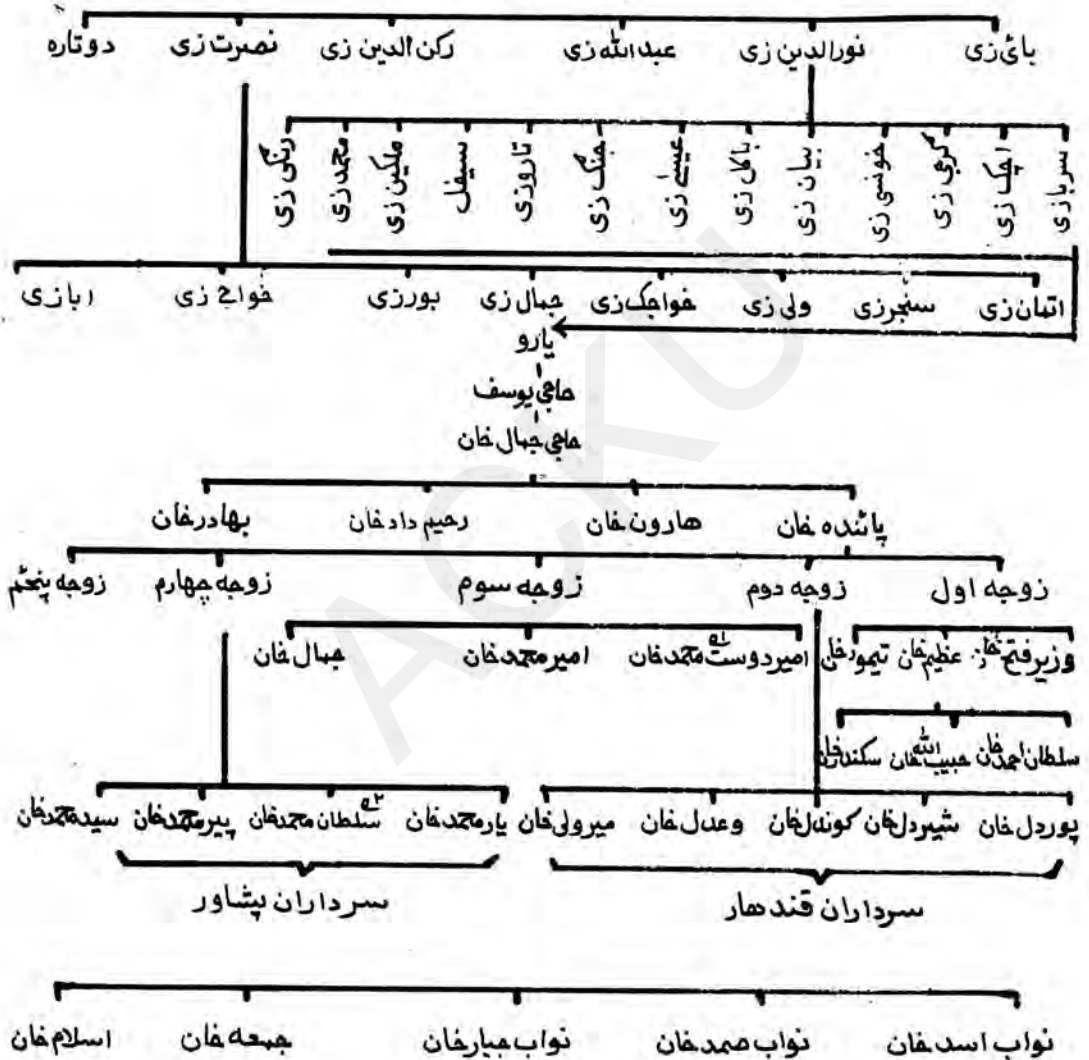 بائ زی نورالدین زی عبدالله زی رکن الدین زی نصرت زی دوتاره
سربازی اچک زی گرجی زی خونسی زی بیان زی باکل زی عیسے زی جنگ زی تاروزی سیفل ملکین زی محمدزی رنگی زی
اتمان زی سنجرزی ولی زی خواجک زی جمال زی بورزی خواجے زی ابازی
یارو
حاجی یوسف
حاجی جمال خان
پائنده خان هارون خان رحیم دادخان بهادرخان
زوجه اول زوجه دوم زوجه سوم زوجه چهارم زوجه پنجم
وزیرفتح خان عظیم خان تیمورخان امیردوست محمدخان امیرمحمدخان جمال خان
سلطان احمدخان حبیب الله خان سکندرخان
پوردل خان شیردل خان کوندل خان وعدل خان میرولی خان یارمحمدخان سلطان محمدخان پیرمحمدخان سیدمحمدخان
سرداران قندهار سرداران پشاور
نواب اسدخان نواب صمدخان نواب جبارخان جمعه خان اسلام خان
ACKU